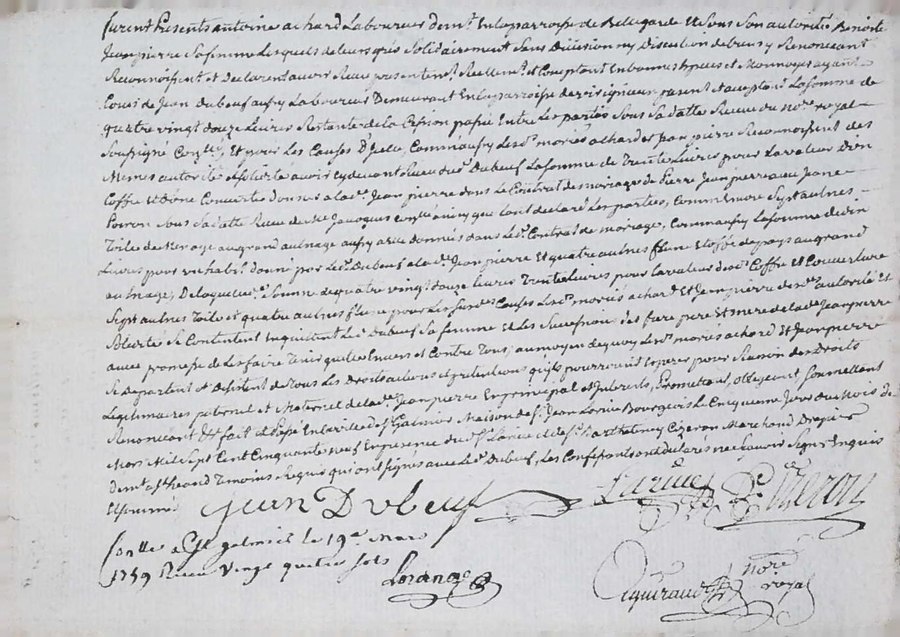 furent presents antoine achard Laboureur dem.t En la parroisse de Bellegarde Et sous son autorité Benoite
Jeanpierre sa femme Lesquels de leurs grés solidairement sans Division ny Discution de biens y Renonceant
Reconnoissent et Declarent avoir Receu presentem.t Reellem.t et Comptant En bonnes Especes et Monnoyes ayant
Cours de Jean dubeuf aussy Laboureur Demeurant En la parroisse de present et acceptant La somme de
quatre vingt douze Livres Restante de la Cession passé Entre Les parties sous sa datte Receue du no.re royal
soussigné Con.llé, Et pour Les Causes D'jcelle, Comm'aussy Les d. mariés achard et jeanpierre Reconnoissent des
Mêmes autorité avoir cy devant Receu dud. Dubeuf La somme de Trente Livres pour La valeur D'un
Coffre et D'une Couverte donnés a lad. Jeanpierre dans le Contrat de mariage de Pierre Jeanpierre au Jeane
Poiron sous sa datte Receu de M.e Jacques que l'ont declaré Les parties, Comm'encore sept aulnes
Toile de Menage au grand aulnage aussy a elle donnés dans Led. Contrat de mariage, Comm'aussy La somme de vin
Livres pour un habit donné par Led. Dubeuf a lad. Jeanpierre Et quatre aulnes Etoffe de pays au grand
aulnage, De laquelle d. somme de quatre vingt douze Livres Trente Livres pour La valeur desd. Coffre Et Couverture
Sept aulnes Toile et quatre aulnes pour Les susd. Causes Les d. mariés achard Et Jeanpierre de m. autorité et
se Contentent En quittent Led. Dubeuf sa femme Et Les successions des feus pere Et mere de lad. Jeanpierre
avec promesse de Les faire Tenir quittes Envers et Contre Tous, au moyen de quoy Les d. mariés achard Et Jeanpierre
se departent et desistent de Tous Les Droits actions et pretentions qu'ils pourroient Esperer pour Raison des Droits
Legitimaires, paternel et Maternel de lad. Jeanpierre En principal et Interests, Promettans, obligeant, soumettans
Renonceant D.t fait et passé En la ville de S.t Galmier Maison de S.r Jean Larive Bourgeois Le Cinquieme Jour du Mois de
Mars Mil sept Cent Cinquante neuf En presence dud. S.r Larive et de S.r Barthelemy Cizeron Marchand Drapier
dem.t a S.t heand Temoins Requis qui ont signés avec Led. Dubeuf, Les Confessants ont declarés ne sçavoir signer Enquis
Et sommés
Jean Dubeuf Larive Cizeron
Con.llé a S.t galmier le 19.e Mars
1759 Receu vingt quatre sols
Lorange
no.re royal